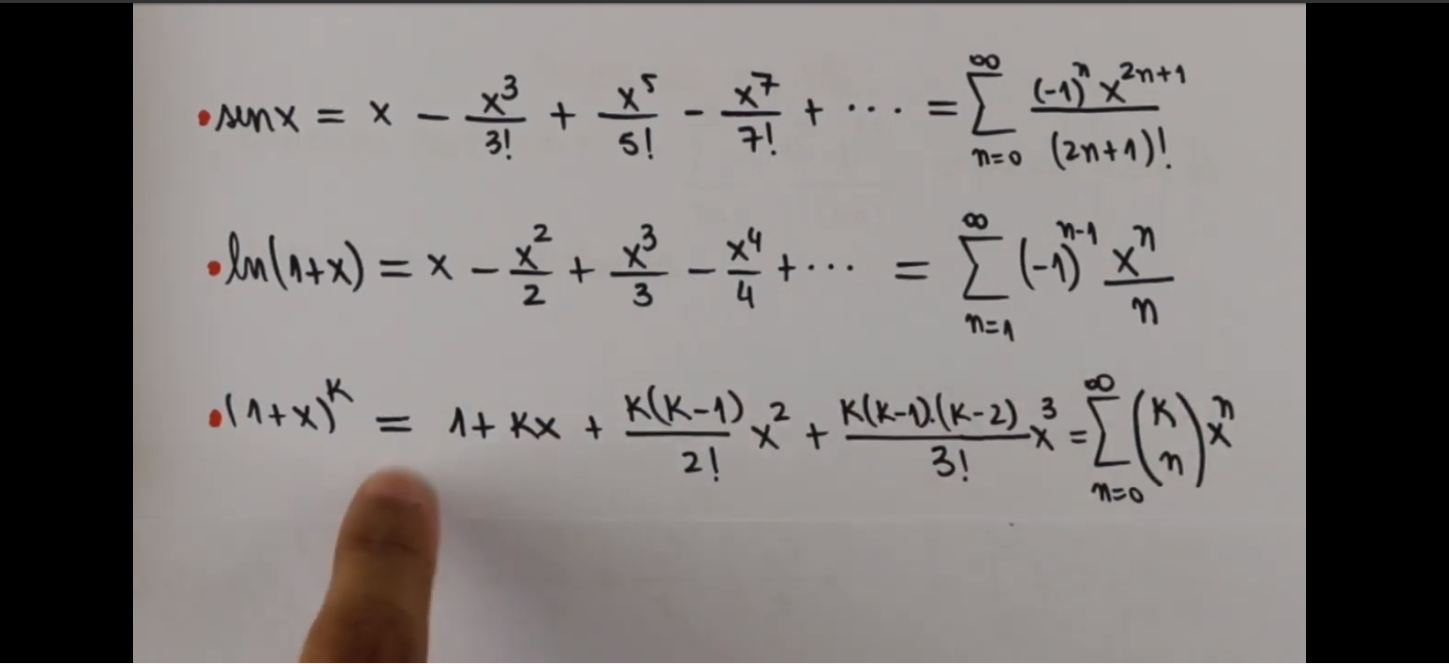 • sen x = x - x³/3! + x⁵/5! - x⁷/7! + ··· = ∑_{n=0}^{∞} (-1)ⁿ x²ⁿ⁺¹/(2n+1)!
• ln(1+x) = x - x²/2 + x³/3 - x⁴/4 + ··· = ∑_{n=1}^{∞} (-1)ⁿ⁻¹ xⁿ/n
• (1+x)^K = 1 + Kx + K(K-1)/2! x² + K(K-1).(K-2)/3! x³ = ∑_{n=0}^{∞} (K n) xⁿ